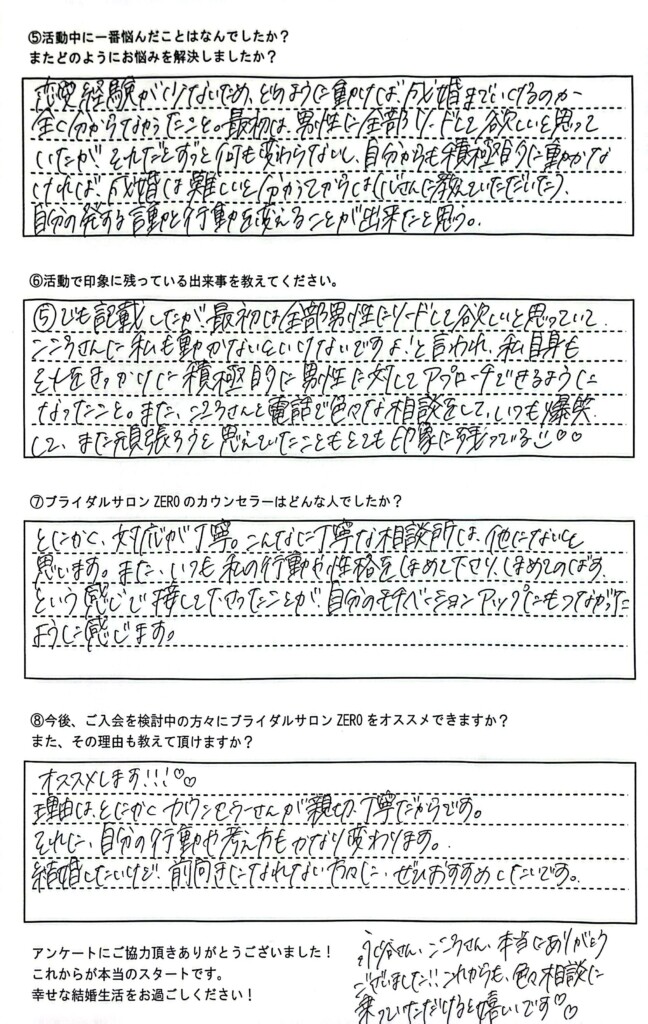 ⑤活動中に一番悩んだことはなんでしたか？
またどのようにお悩みを解決しましたか？
恋愛経験が少ないため、どのように動けば成婚までいけるのか
全く分からなかったこと。最初は、男性に全部リードして欲しいと思って
いたが、それだとずっと何も変わらないし、自分からも積極的に動かな
ければ、成婚は難しいと分かってからは(      さんに教えていただいた)、
自分の発する言動と行動を変えることが出来たと思う。
⑥活動で印象に残っている出来事を教えてください。
⑤でも記載したが、最初は全部男性にリードして欲しいと思っていて、
こころさんに「私も動かないといけないですよ!」と言われ、私自身も
それをきっかけに積極的に男性に対してアプローチできるように
なったこと。また、こころさんと電話で色々な相談をして、いつも爆笑
して、また頑張ろうと思えていたこともとても印象に残っている♡♡
⑦ブライダルサロンZEROのカウンセラーはどんな人でしたか？
とにかく、対応が丁寧。こんなに丁寧な相談所は、他にないと
思います。また、いつも私の行動や性格をほめて下さり、ほめてのばす
という感じで接して下さったことが、自分のモチベーションアップにもつながった
ように感じます。
⑧今後、ご入会を検討中の方々にブライダルサロンZEROをオススメできますか？
また、その理由も教えて頂けますか？
オススメします!!!♡♡
理由は、とにかくカウンセラーさんが親切、丁寧だからです。
それに、自分の行動や考え方もかなり変わります。
結婚したいけど、前向きになれない方々に、ぜひおすすめしたいです。
アンケートにご協力頂きありがとうございました！
これからが本当のスタートです。
幸せな結婚生活をお過ごしください！
さん、こころさん、本当にありがとう
ございました!!これからも、色々相談に
乗っていただけると嬉しいです♡♡